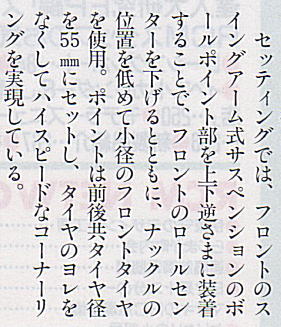 セッティングでは、フロントのス
イングアーム式サスペンションのボ
ールポイント部を上下逆さまに装着
することで、フロントのロールセン
ターを下げるとともに、ナックルの
位置を低めて小径のフロントタイヤ
を使用。ポイントは前後共タイヤ径
を55㎜にセットし、タイヤのヨレを
なくしてハイスピードなコーナーリ
ングを実現している。